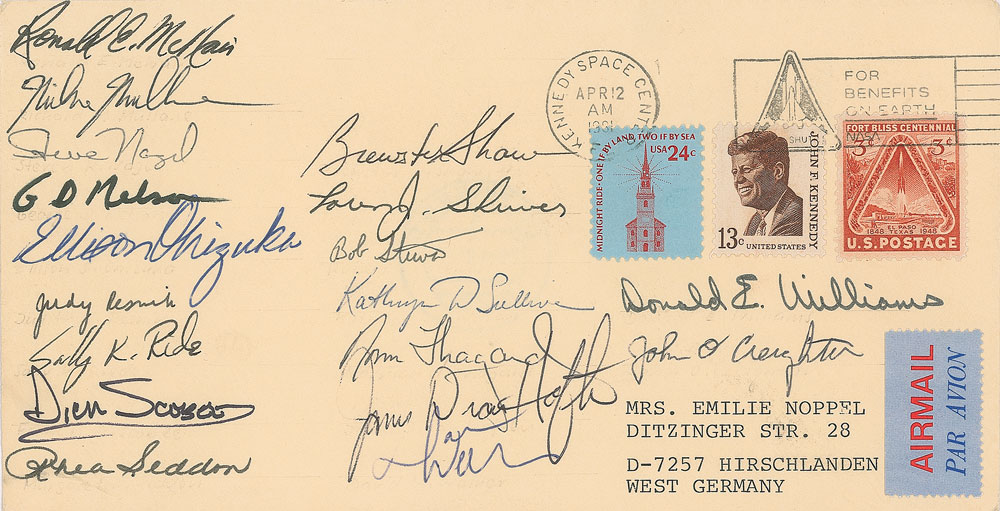 Ronald E. McNair
Mike Mullane
Steve Nagel
G D Nelson
Ellison Onizuka
Judy Resnik
Sally K. Ride
Dick Scobee
Rhea Seddon
Brewster Shaw
Loren J. Shriver
Bob Stewart
Kathryn D Sullivan
Norm Thagard
James van Hoften
KENNEDY SPACE CENTER
APR 12
AM
1981
FOR
BENEFITS
ON EARTH
NASA
SHU
MIDNIGHT RIDE · ONE IF BY LAND, TWO IF BY SEA
USA 24c
JOHN F. KENNEDY
13c UNITED STATES
FORT BLISS CENTENNIAL
3¢ 3¢
EL PASO
1848 TEXAS 1948
U.S. POSTAGE
Donald E. Williams
John O Creighton
MRS. EMILIE NOPPEL
DITZINGER STR. 28
D-7257 HIRSCHLANDEN
WEST GERMANY
AIRMAIL
PAR AVION